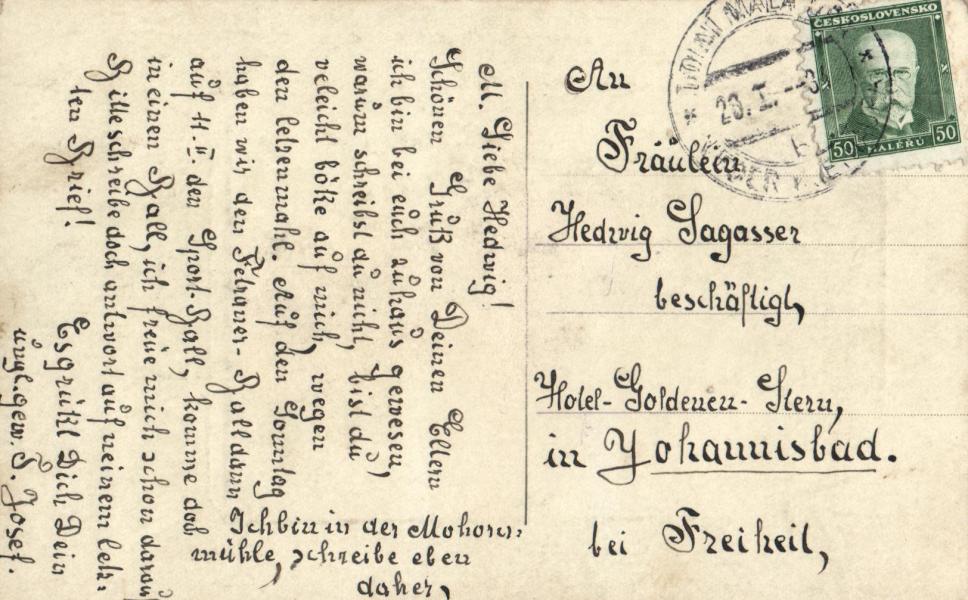 M. Liebe Hedwig!
Schönen Gruß von Deinen Eltern
ich bin bei euch zuhaus gewesen,
warum schreibst du nicht, bist du
veleicht böße auf mich, wegen
den letzenmahl. Auf den Sonntag
haben wir den Felzaner-Ball dann
auf 11.II. den Sport-Ball, komme doch
in einen Ball, ich freue mich schon darauf
Bitte schreibe doch antwort auf meinem letz-
ten Brief!
Es grüßt Dich Dein
J. Josef.
Ich bin in der Mohorn-
mühle, schreibe eben
daher,
An
Fräulein
Hedwig Sagasser
beschäftigt,
Hotel-Goldenen-Stern,
in Johannisbad.
bei Freiheit,
ČESKOSLOVENSKO
50 HALÉRŮ 50